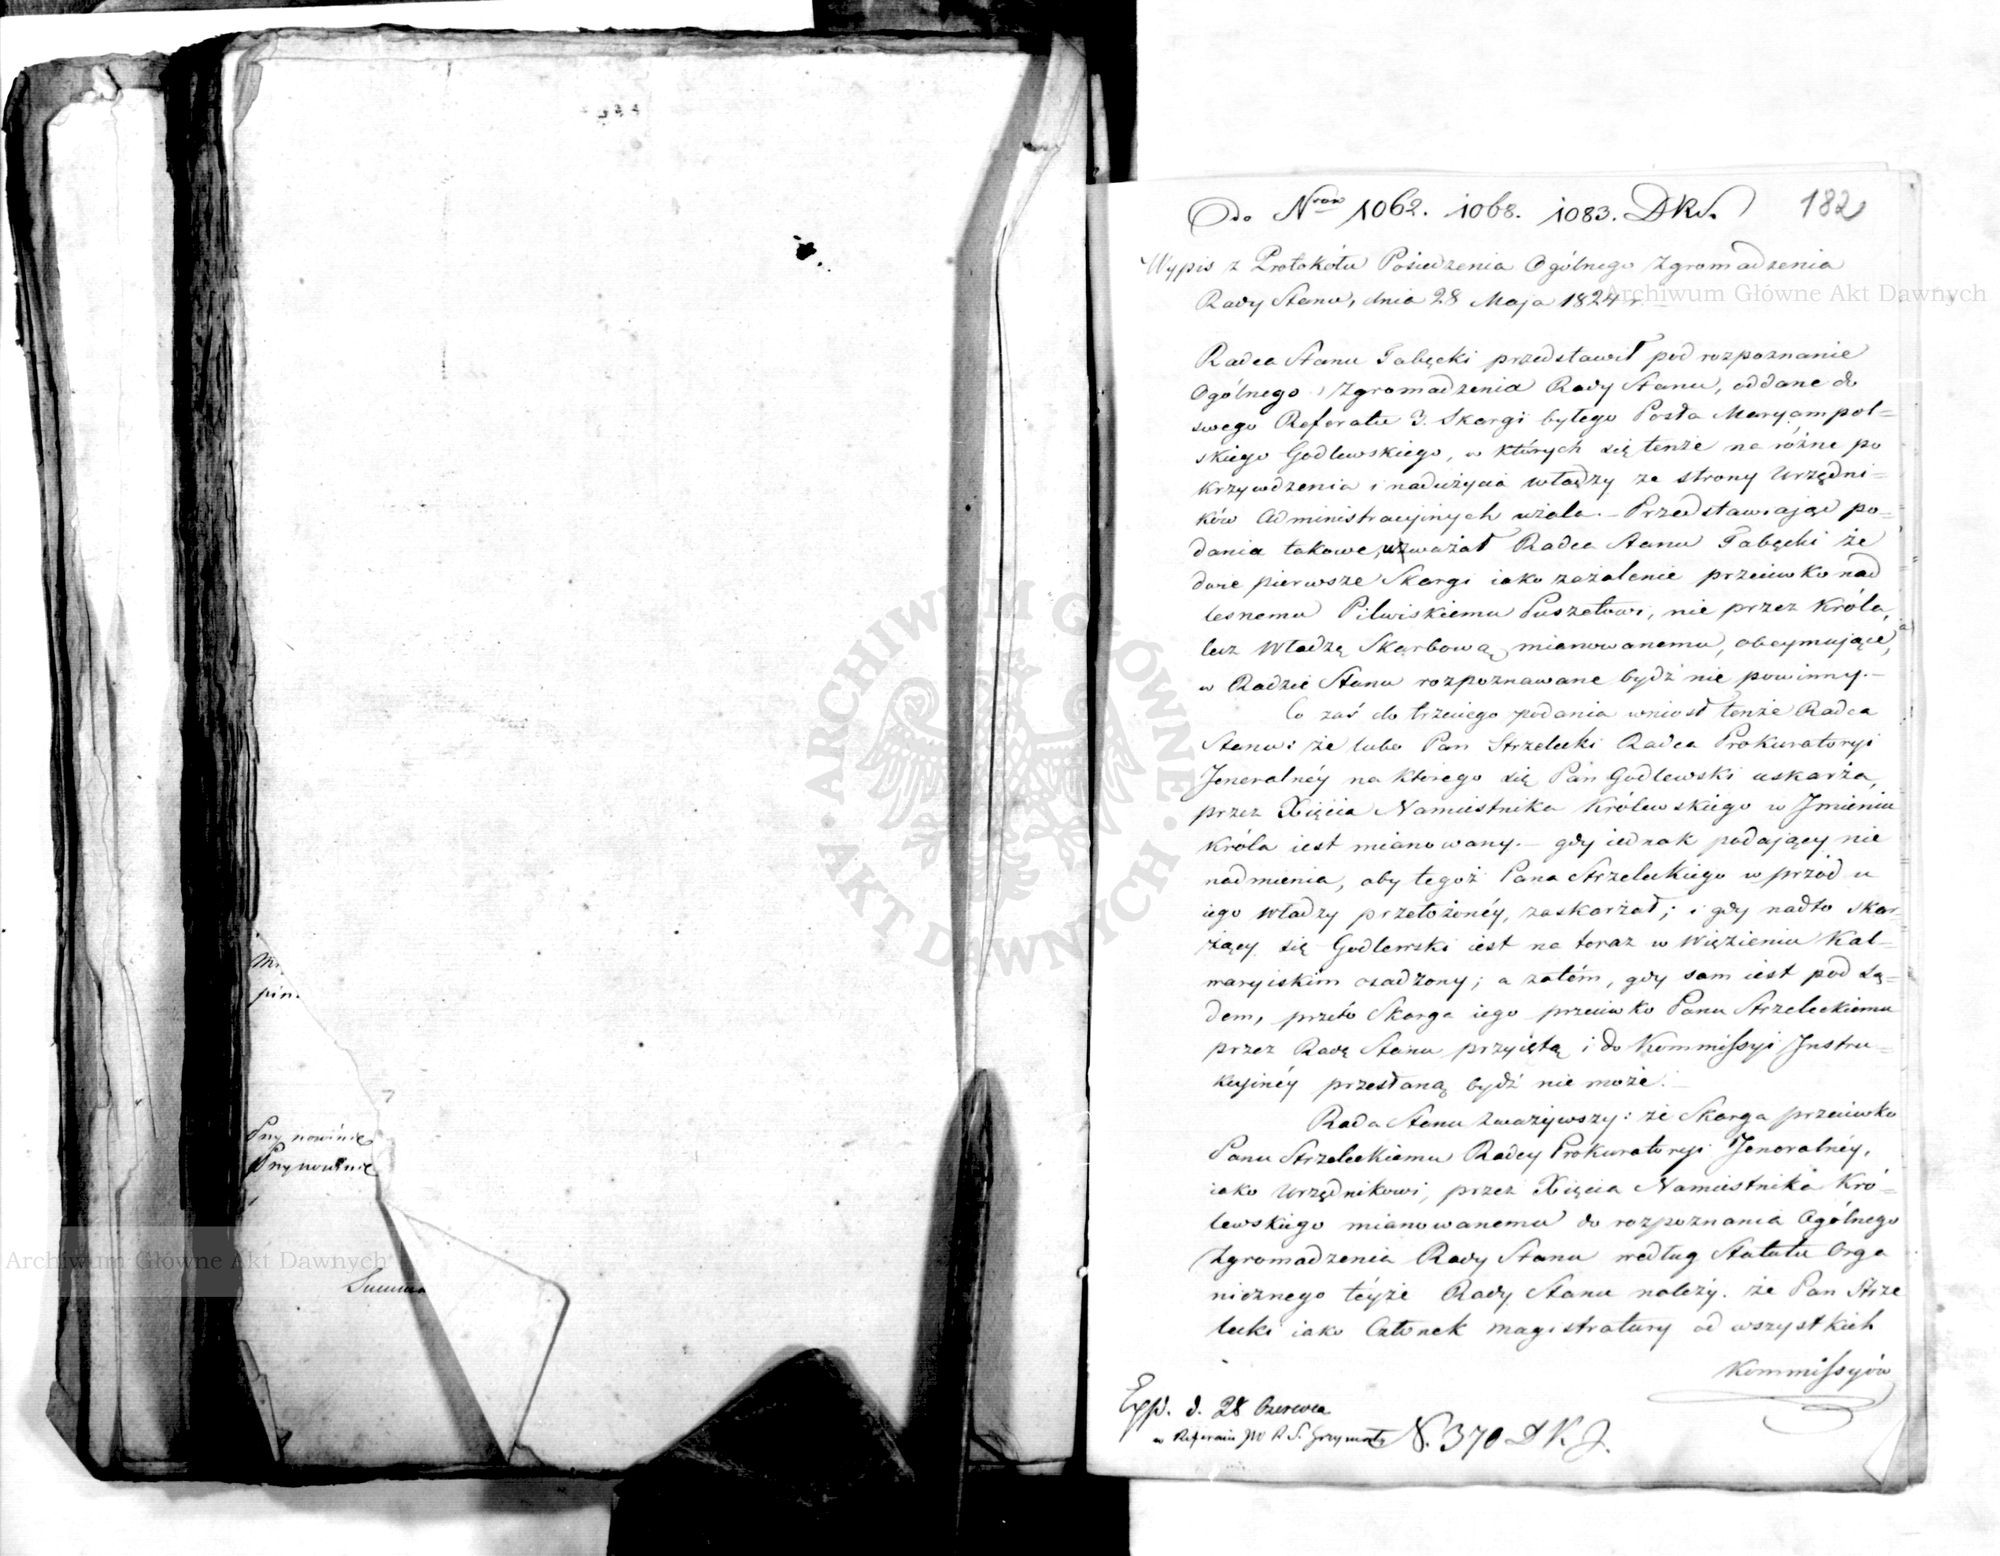 Do Nrow 1062. 1068. 1083. DKS.
182
Wypis z Protokółu Posiedzenia Ogólnego Zgromadzenia
Rady Stanu, dnia 28 Maja 1824 r.
Radca Stanu Tabęcki przedstawił pod rozpoznanie
Ogólnego Zgromadzenia Rady Stanu, oddane do
swego Referatu 3. Skargi byłego Posła Maryampol=
skiego Godlewskiego, w których się tenże na różne po
krzywdzenia i nadużycia władzy ze strony Urzędni=
ków Administracyjnych użala. – Przedstawiając po=
dania takowe, uważał Radca Stanu Tabęcki że
dwie pierwsze Skargi iako zażalenie przeciwko nad
lesnemu Pilwiskiemu Puszetowi, nie przez Króla,
lecz Władzę Skarbową mianowanemu, obeymuiące,
w Radzie Stanu rozpoznawane bydź nie powinny. –
Co zaś do trzeciego podania wniosł tenże Radca
Stanu: że lubo Pan Strzelecki Radca Prokuratoryi
Jeneralnéy na którego się Pan Godlewski uskarża,
przez Xięcia Namiestnika Królewskiego w Jmieniu
Króla iest mianowany. – gdy iednak podaiący nie
nadmienia, aby tegoż Pana Strzeleckiego w przód u
iego Władzy przełożonéy, zaskarżał; i gdy nadto skar
żący się Godlewski iest na teraz w Więzieniu Kal=
waryiskim osadzony; a zatém, gdy sam iest pod Są=
dem, przeto Skarga iego przeciwko Panu Strzeleckiemu
przez Radę Stanu przyiętą i do Kommissyi Jnstru=
kcyinéy przesłaną bydź nie może. –
Rada Stanu zważywszy: że Skarga przeciwko
Panu Strzeleckiemu Radcy Prokuratoryi Jeneralnéy,
iako Urzędnikowi, przez Xięcia Namiestnika Kró=
lewskiego mianowanemu do rozpoznania Ogólnego
Zgromadzenia Rady Stanu według Statutu Orga
nicznego téyże Rady Stanu należy. że Pan Strze
lecki iako Członek magistratury od wszystkich
Kommissyów
Exp. d. 28 Czerwca
w Referacie JW R. S. Grzymały N. 370 D K J.
Przynowinie
Przynowinie
Summa
Archiwum Główne Akt Dawnych
Archiwum Główne Akt Dawnych
ARCHIWUM GŁÓWNE · AKT DAWNYCH ·